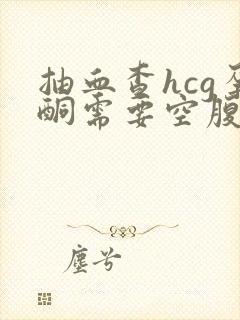 抽血查hcg
酮需要空腹
塵兮